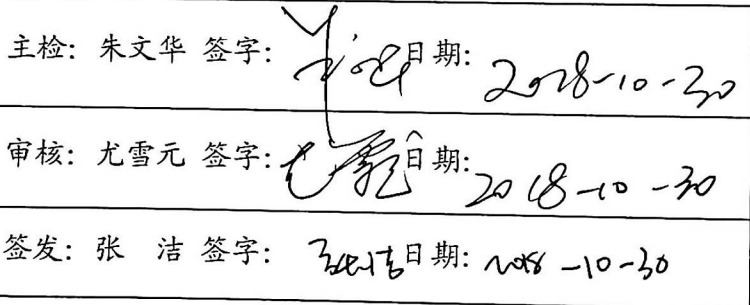 主检：朱文华 签字：朱文华 日期：2018-10-30
审核：尤雪元 签字：尤雪元 日期：2018-10-30
签发：张 洁 签字：张洁 日期：2018-10-30